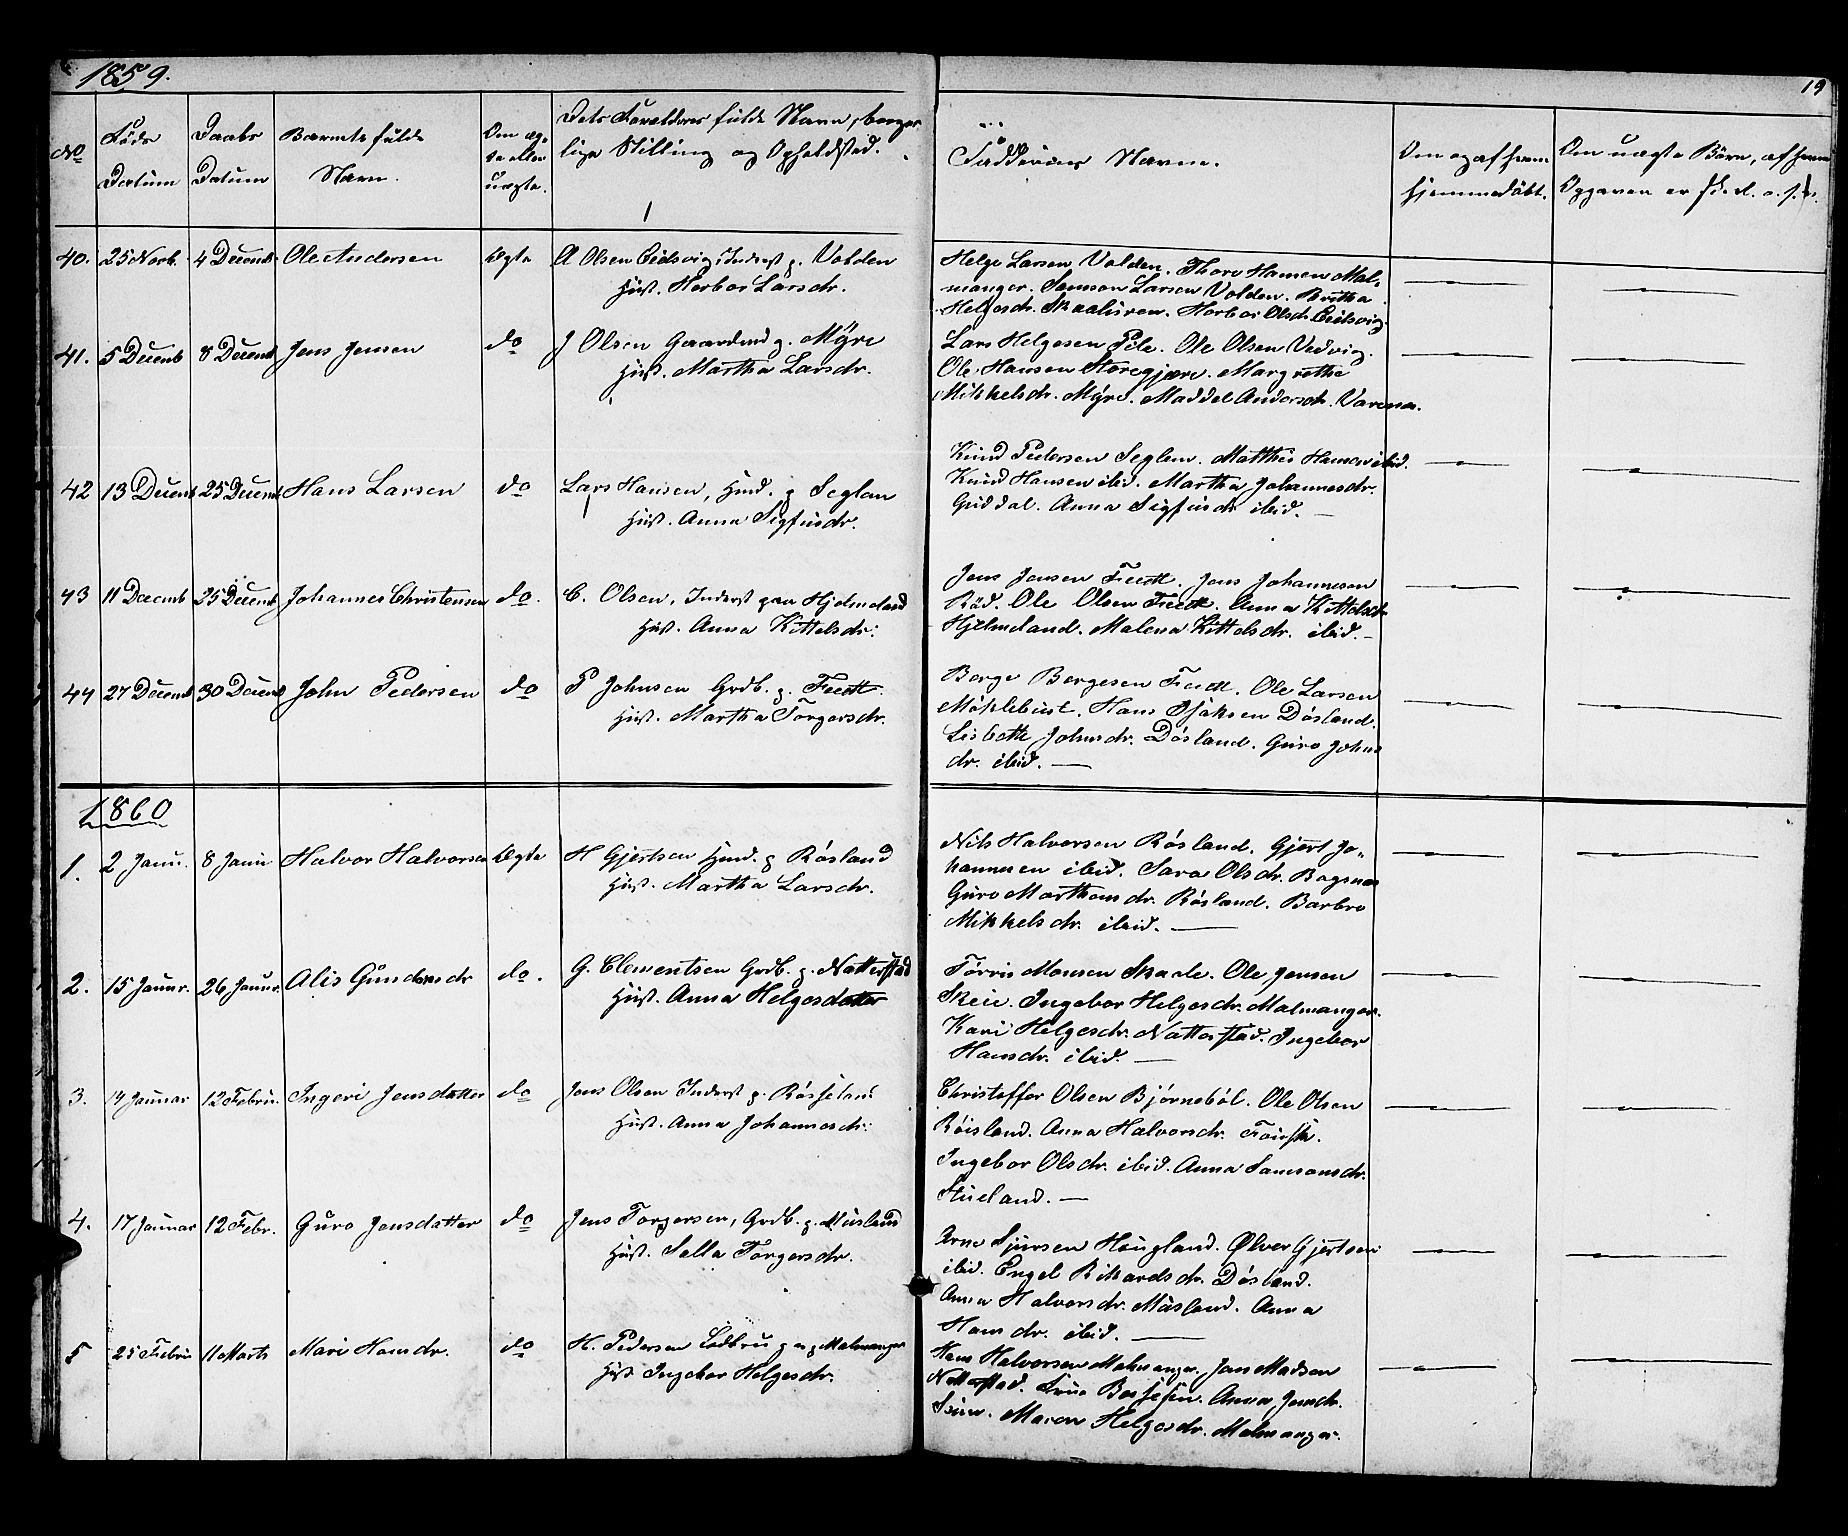 1859.
19
No
Føds Datum
Daabs Datum
Barnets fulde Navn.
Om ægte eller uægte.
Dets Forældres fulde Navn, borgerlige Stilling og Opholdsted.
Faddernes Navne.
Om og af hvem hjemmedøbt.
Om uægte Børn, af hvem Opgaven er
40. 25 Novb. 4 Decemb. Ole Andersen Ægte A Olsen Eidsvig, Inderst p. Volden
Hust. Herbor Larsdr.
Helge Larsen Volden. Thore Hansen Mal-
manger. Samson Larsen Volden. Britha
Helgesdr. Skaaluren. Herbor Olsdr. Eidsvig.
41. 5 Decemb 8 Decemb Jens Jensen do J Olsen Gaardmd p. Myre
Hust. Martha Larsdr.
Lars Helgesen Pile. Ole Olsen Vedvig.
Ole Hansen Storegjære. Margrethe
Mikkelsdr. Myre. Maddel Andersdr.
42 13 Decemb 25 Decemb Hans Larsen do Lars Hansen, Husmd. p Seglem
Hust. Anna Sigfusdr.
Knud Pedersen Seglem. Matthis Hansen ibid.
Knud Hansen ibid. Martha Johannesdr.
Guddal. Anna Sigfusdr ibid. —
43 11 Decemb 25 Decemb Johannes Christensen do. C. Olsen, Inderst paa Hjelmeland
Hust. Anna Kittelsdr.
Jens Jensen Fedt. Jens Johannesen
Rød. Ole Olsen Fedt. Anna Kittelsdr
Hjelmeland. Malena Kittelsdr. ibid. —
44 27 Decemb 30 Decemb John Pedersen do P Johnsen Grdb. p. Fedt
Hust. Martha Torgersdr.
Børge Børgesen Fedt. Ole Larsen
Møklebust. Hans Isaksen Døsland.
Lisbeth Johnsdr. Døsland. Guro Johns
dr. ibid. —
1860
1. 2 Janu. 8 Janu Halvor Halvorsen Ægte H Gjertsen Husmd. p Røsland
Hust. Martha Larsdr.
Nils Halvorsen Røsland. Gjert Jo-
hannesen ibid. Sara Olsdr. Bogsnes
Guro Morthensdr. Røsland. Barbro
Mikkelsdr. ibid. —
2. 15 Januar. 26 Januar. Alis Gundersdr do. G. Clementsen Grdb. p. Natterstad
Hust. Anna Helgesdatter
Tørris Monsen Skaale. Ole Jensen
Skeie. Ingebor Helgesdr. Malmanger.
Kari Helgesdr. Natterstad. Ingebor
Hansdr. ibid. —
3. 14 Januar 12 Febru. Ingeri Jensdatter do Jens Olsen Inderst p. Røsseland
Hust. Anna Johannesdr.
Christoffer Olsen Bjørnebøl. Ole Olsen
Røisland. Anna Halvorsdr.
Ingebor Olsdr. ibid. Anna Samsonsdr.
Stueland. —
4. 17 Januar 12 Febr. Guro Jensdatter do Jens Torgersen, Grdb. p. Musland
Hust. Sella Torgersdr.
Arne Sjursen Hougland. Ølver Gjertsen
ibid. Engel Rikardsdr. Døsland.
Anna Halvorsdr. Musland. Anna
Hansdr. ibid. —
5 25 Febru 11 Marts Mari Hansdr. do H. Pedersen Malmanger
Hust Ingebor Helgesdr.
Hans Halvorsen Malmanger, Jens Madsen
Natterstad. Anna Jensdr.
Maren Helgesdr. Malmanger.